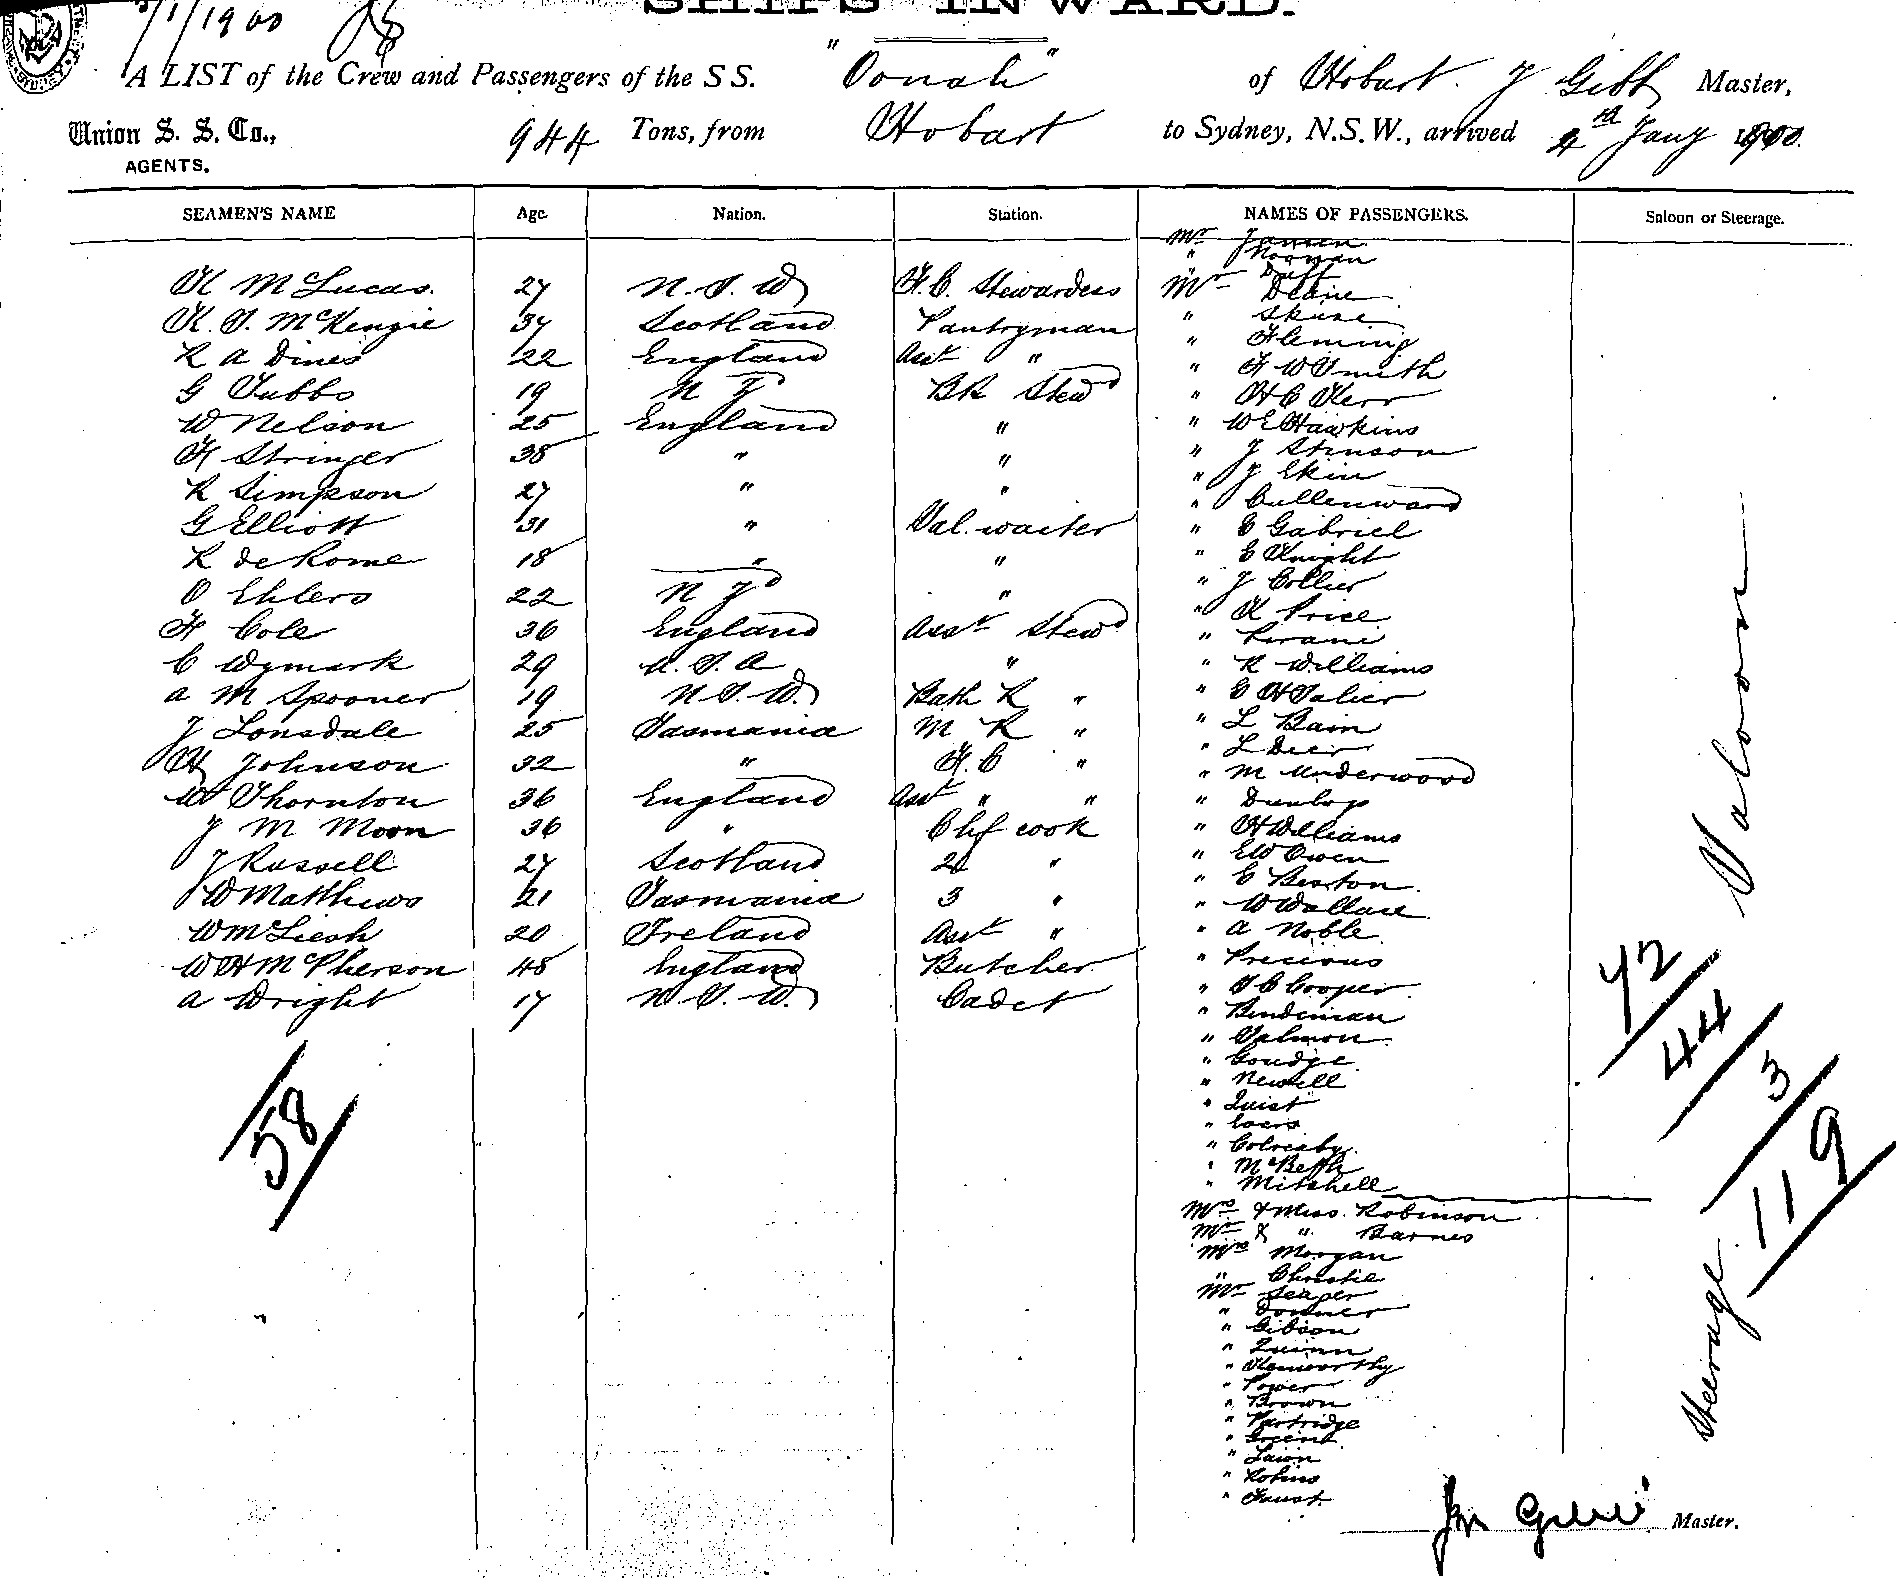 5/1/1900
SHIPS INWARD.
A LIST of the Crew and Passengers of the SS. "Oonah" of Hobart. J Gibb Master,
Union S. S. Co., AGENTS. 944 Tons, from Hobart to Sydney, N.S.W., arrived 4th Jany 1900.
SEAMEN'S NAME Age. Nation. Station. NAMES OF PASSENGERS. Saloon or Steerage.
K McLucas. 27 N.S.W F.C. Stewardess
K. S. McKenzie 37 Scotland Pantryman
R A Dines 22 England Asst "
G Tubbs 19 N Z BR Stewd
W Nelson 25 England "
H Stringer 38 " "
R Simpson 27 " "
G Elliott 31 " Sal. waiter
R de Rome 18 " "
O Ehlers 22 N Zd "
H Cole 36 England Asst Stewd
C Wymark 29 U.S.A "
A M Spooner 19 N.S.W. Bath R "
J Lonsdale 25 Tasmania M R "
H Johnson 32 " F.C "
W Thornton 36 England Asst " "
J M Moon 36 " Chf cook
J Russell 27 Scotland 2d "
W Matthews 21 Tasmania 3 "
W McLiesh 20 Ireland Asst "
W H McPherson 48 England Butcher
A Wright 17 N.S.W. Cadet
58
Mr Jansen
" Noonan
" Daft
Mr Deane
" Skuse
" Fleming
" F W Smith
" H C Kerr
" W E Hawkins
" J Stinson
" J Ekin
" Cullenward
" C Gabriel
" C Knight
" J Collier
" K Price
" Pirani
" R Williams
" C H Salier
" L Bain
" L Deer
" M Underwood
" Dunlop
" H Williams
" E W Owen
" C Beaton
" W Wallace
" A Noble
" Precious
" T C Cooper
" Bendeman
" Salmon
" Goudge
" Newell
" Quist
"
"
" McBeth
" Mitchell
Mrs & Miss. Robinson
Mr & " Barnes
Mrs Morgan
" Christie
Mr Seager
"
" Gibson
" Quinn
" Kenworthy
" Power
" Brown
" Partridge
"
"
" Robins
" Faust
Saloon
72
44
3
119
Steerage
Jn Gibb Master.